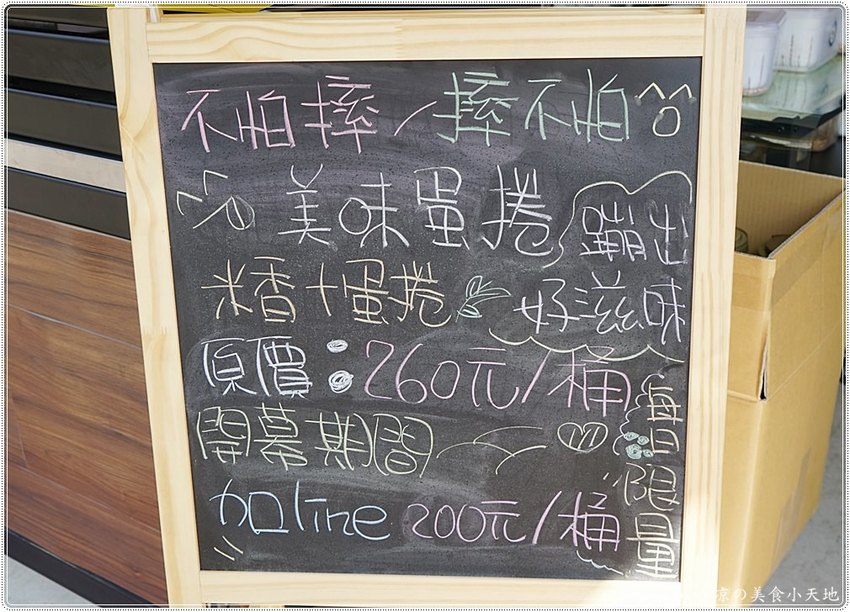 不怕摔/摔不怕
美味蛋捲
蹦出
好滋味
米香+蛋捲
原價:260元/桶
開幕期間
加line 200元/桶
每日限量
の美食小天地